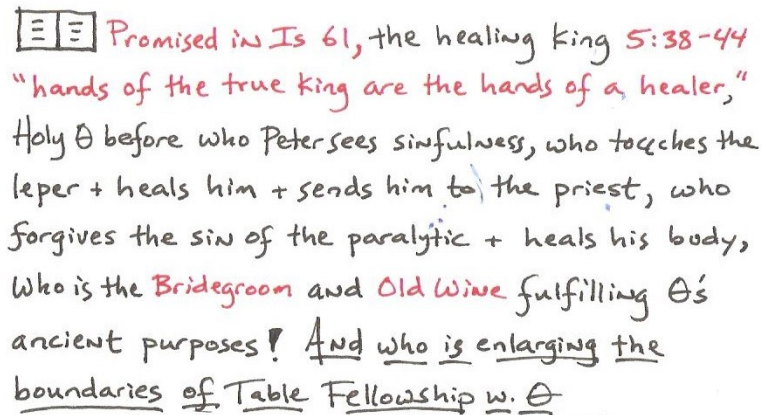 Promised in Is 61, the healing king 5:38-44
"hands of the true king are the hands of a healer,"
Holy θ before who Peter sees sinfulness, who touches the
leper + heals him + sends him to the priest, who
forgives the sin of the paralytic + heals his body,
Who is the Bridegroom and Old Wine fulfilling θ's
ancient purposes! And who is enlarging the
boundaries of Table Fellowship w. θ